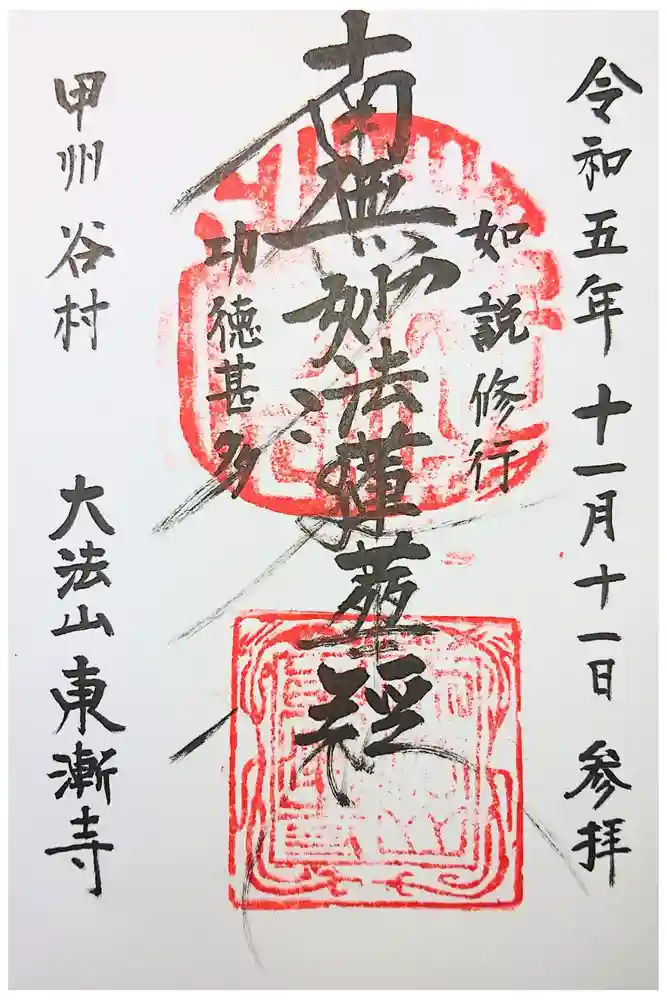 令和五年 十一月十一日 参拝
如説修行
南無妙法蓮華経
功徳甚多
甲州 谷村 大法山 東漸寺